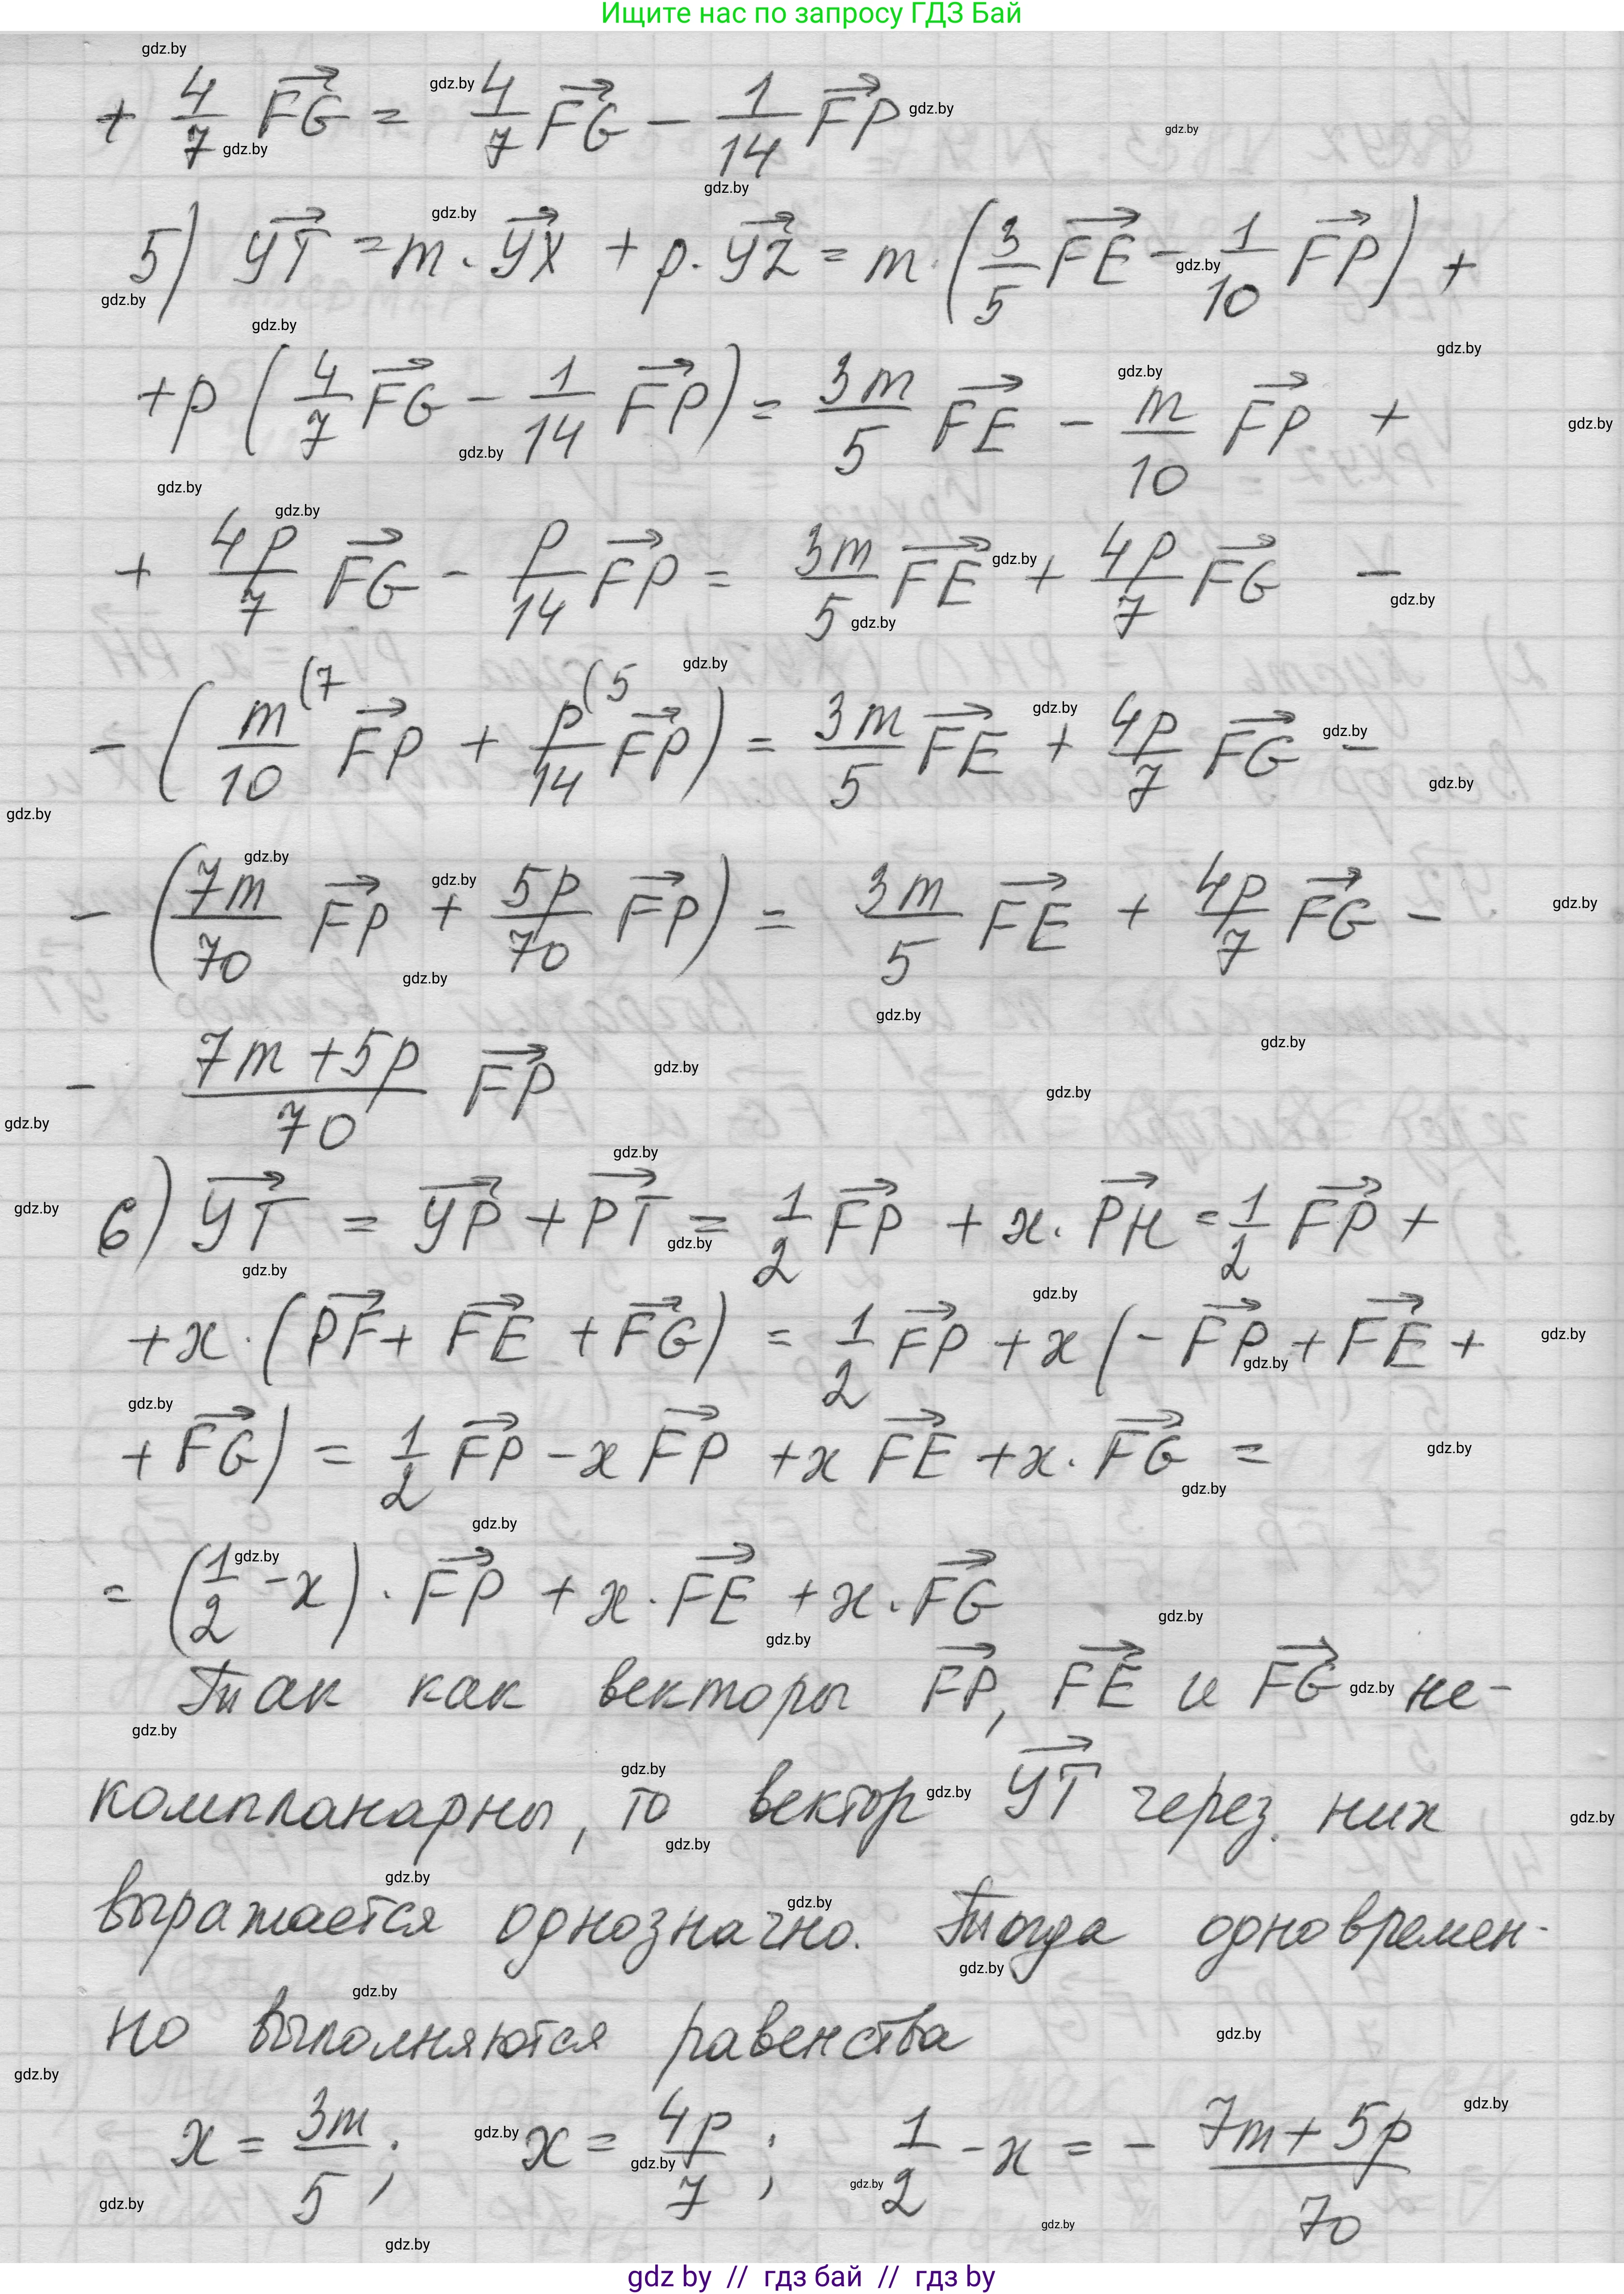 Ищите нас по запросу ГДЗ Бай
+ 4/7 FG = 4/7 FG - 1/14 FP
5) YT = m · YX + p · YZ = m · (3/5 FE - 1/10 FP) +
+ p (4/7 FG - 1/14 FP) = 3m/5 FE - m/10 FP +
+ 4p/7 FG - p/14 FP = 3m/5 FE + 4p/7 FG -
- (m/10 (7 FP + p/14 (5 FP) = 3m/5 FE + 4p/7 FG -
- (7m/70 FP + 5p/70 FP) = 3m/5 FE + 4p/7 FG -
- 7m + 5p/70 FP
6) YT = YP + PT = 1/2 FP + x · PH = 1/2 FP +
+ x · (PF + FE + FG) = 1/2 FP + x (- FP + FE +
+ FG) = 1/2 FP - x FP + x FE + x · FG =
= (1/2 - x) · FP + x · FE + x · FG
Так как векторы FP, FE и FG не-
компланарны, то вектор YT через них
выражается однозначно. Тогда одновремен-
но выполняются равенства
x = 3m/5; x = 4p/7; 1/2 - x = - 7m + 5p/70
gdz by // гдз бай // гдз by